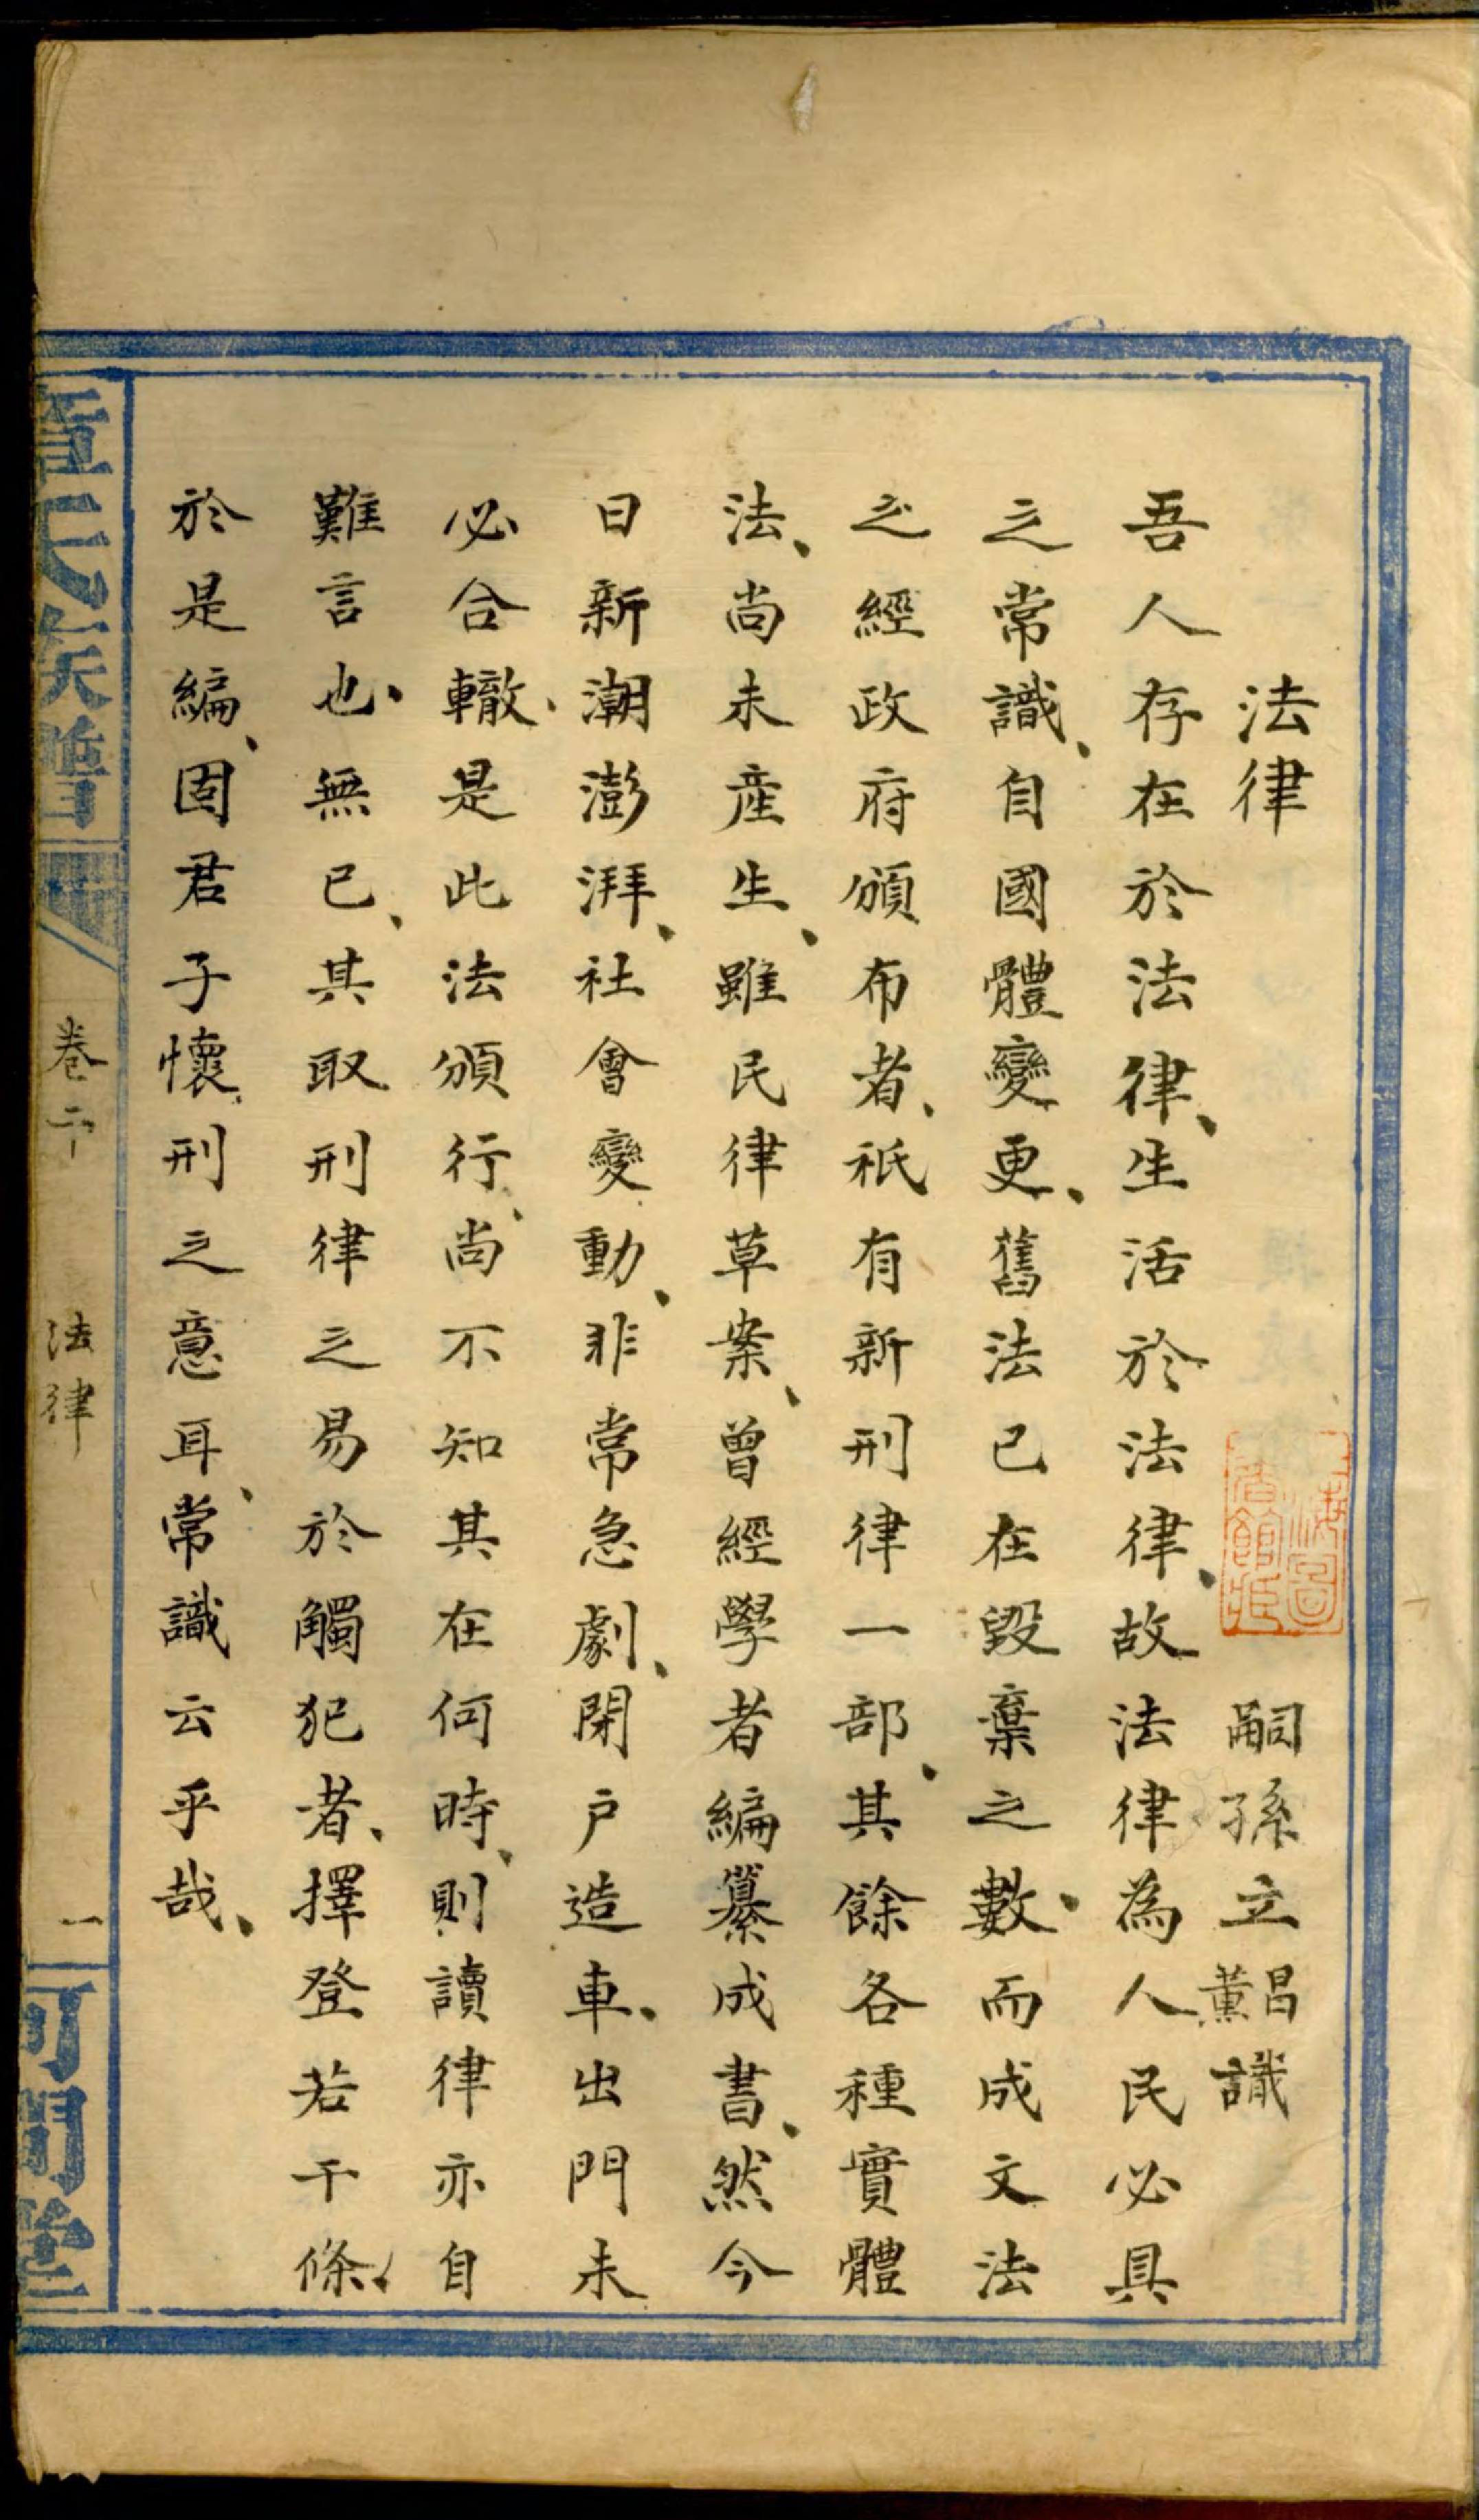 法律　　嗣孫立昌薰識
吾人存在於法律、生活於法律、故法律為人民必具
之常識、自國體變更、舊法已在毀棄之數、而成文法
之經政府頒布者、祇有新刑律一部、其餘各種實體
法、尚未產生、雖民律草案、曾經學者編纂成書、然今
日新潮澎湃、社會變動、非常急劇、閉户造車、出門未
必合轍、是此法頒行、尚不知其在何時、則讀律亦自
難言也、無已、其取刑律之易於觸犯者、擇登若干條、
於是編、固君子懷刑之意耳、常識云乎哉、
章氏族譜
卷二下　法律　一